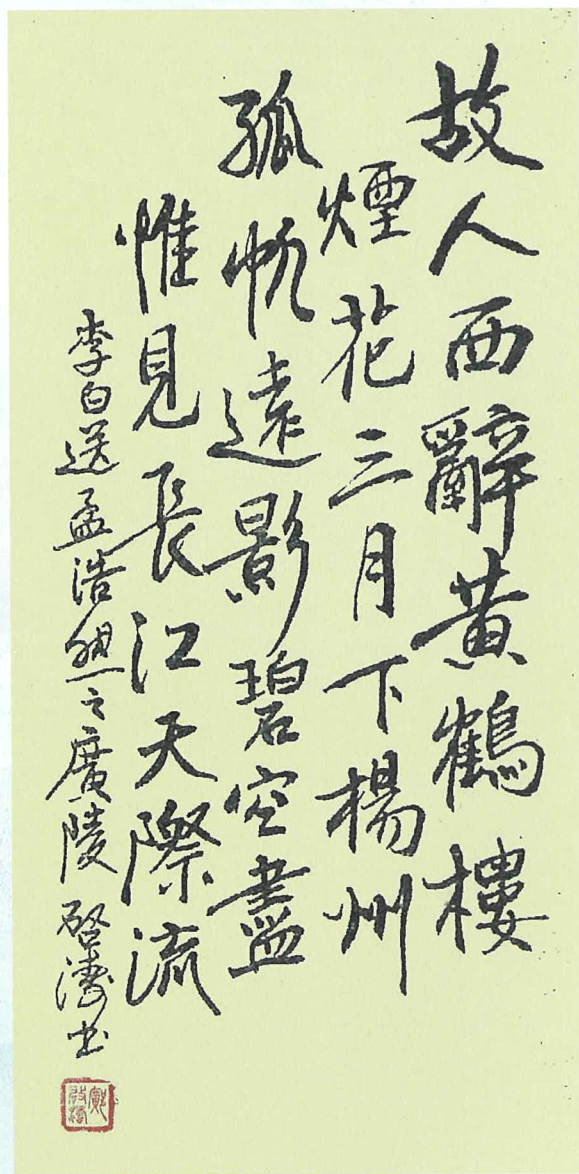 故人西辭黃鶴樓
煙花三月下楊州
孤帆遠影碧空盡
惟見長江天際流
李白送孟浩然之廣陵 啓濤书